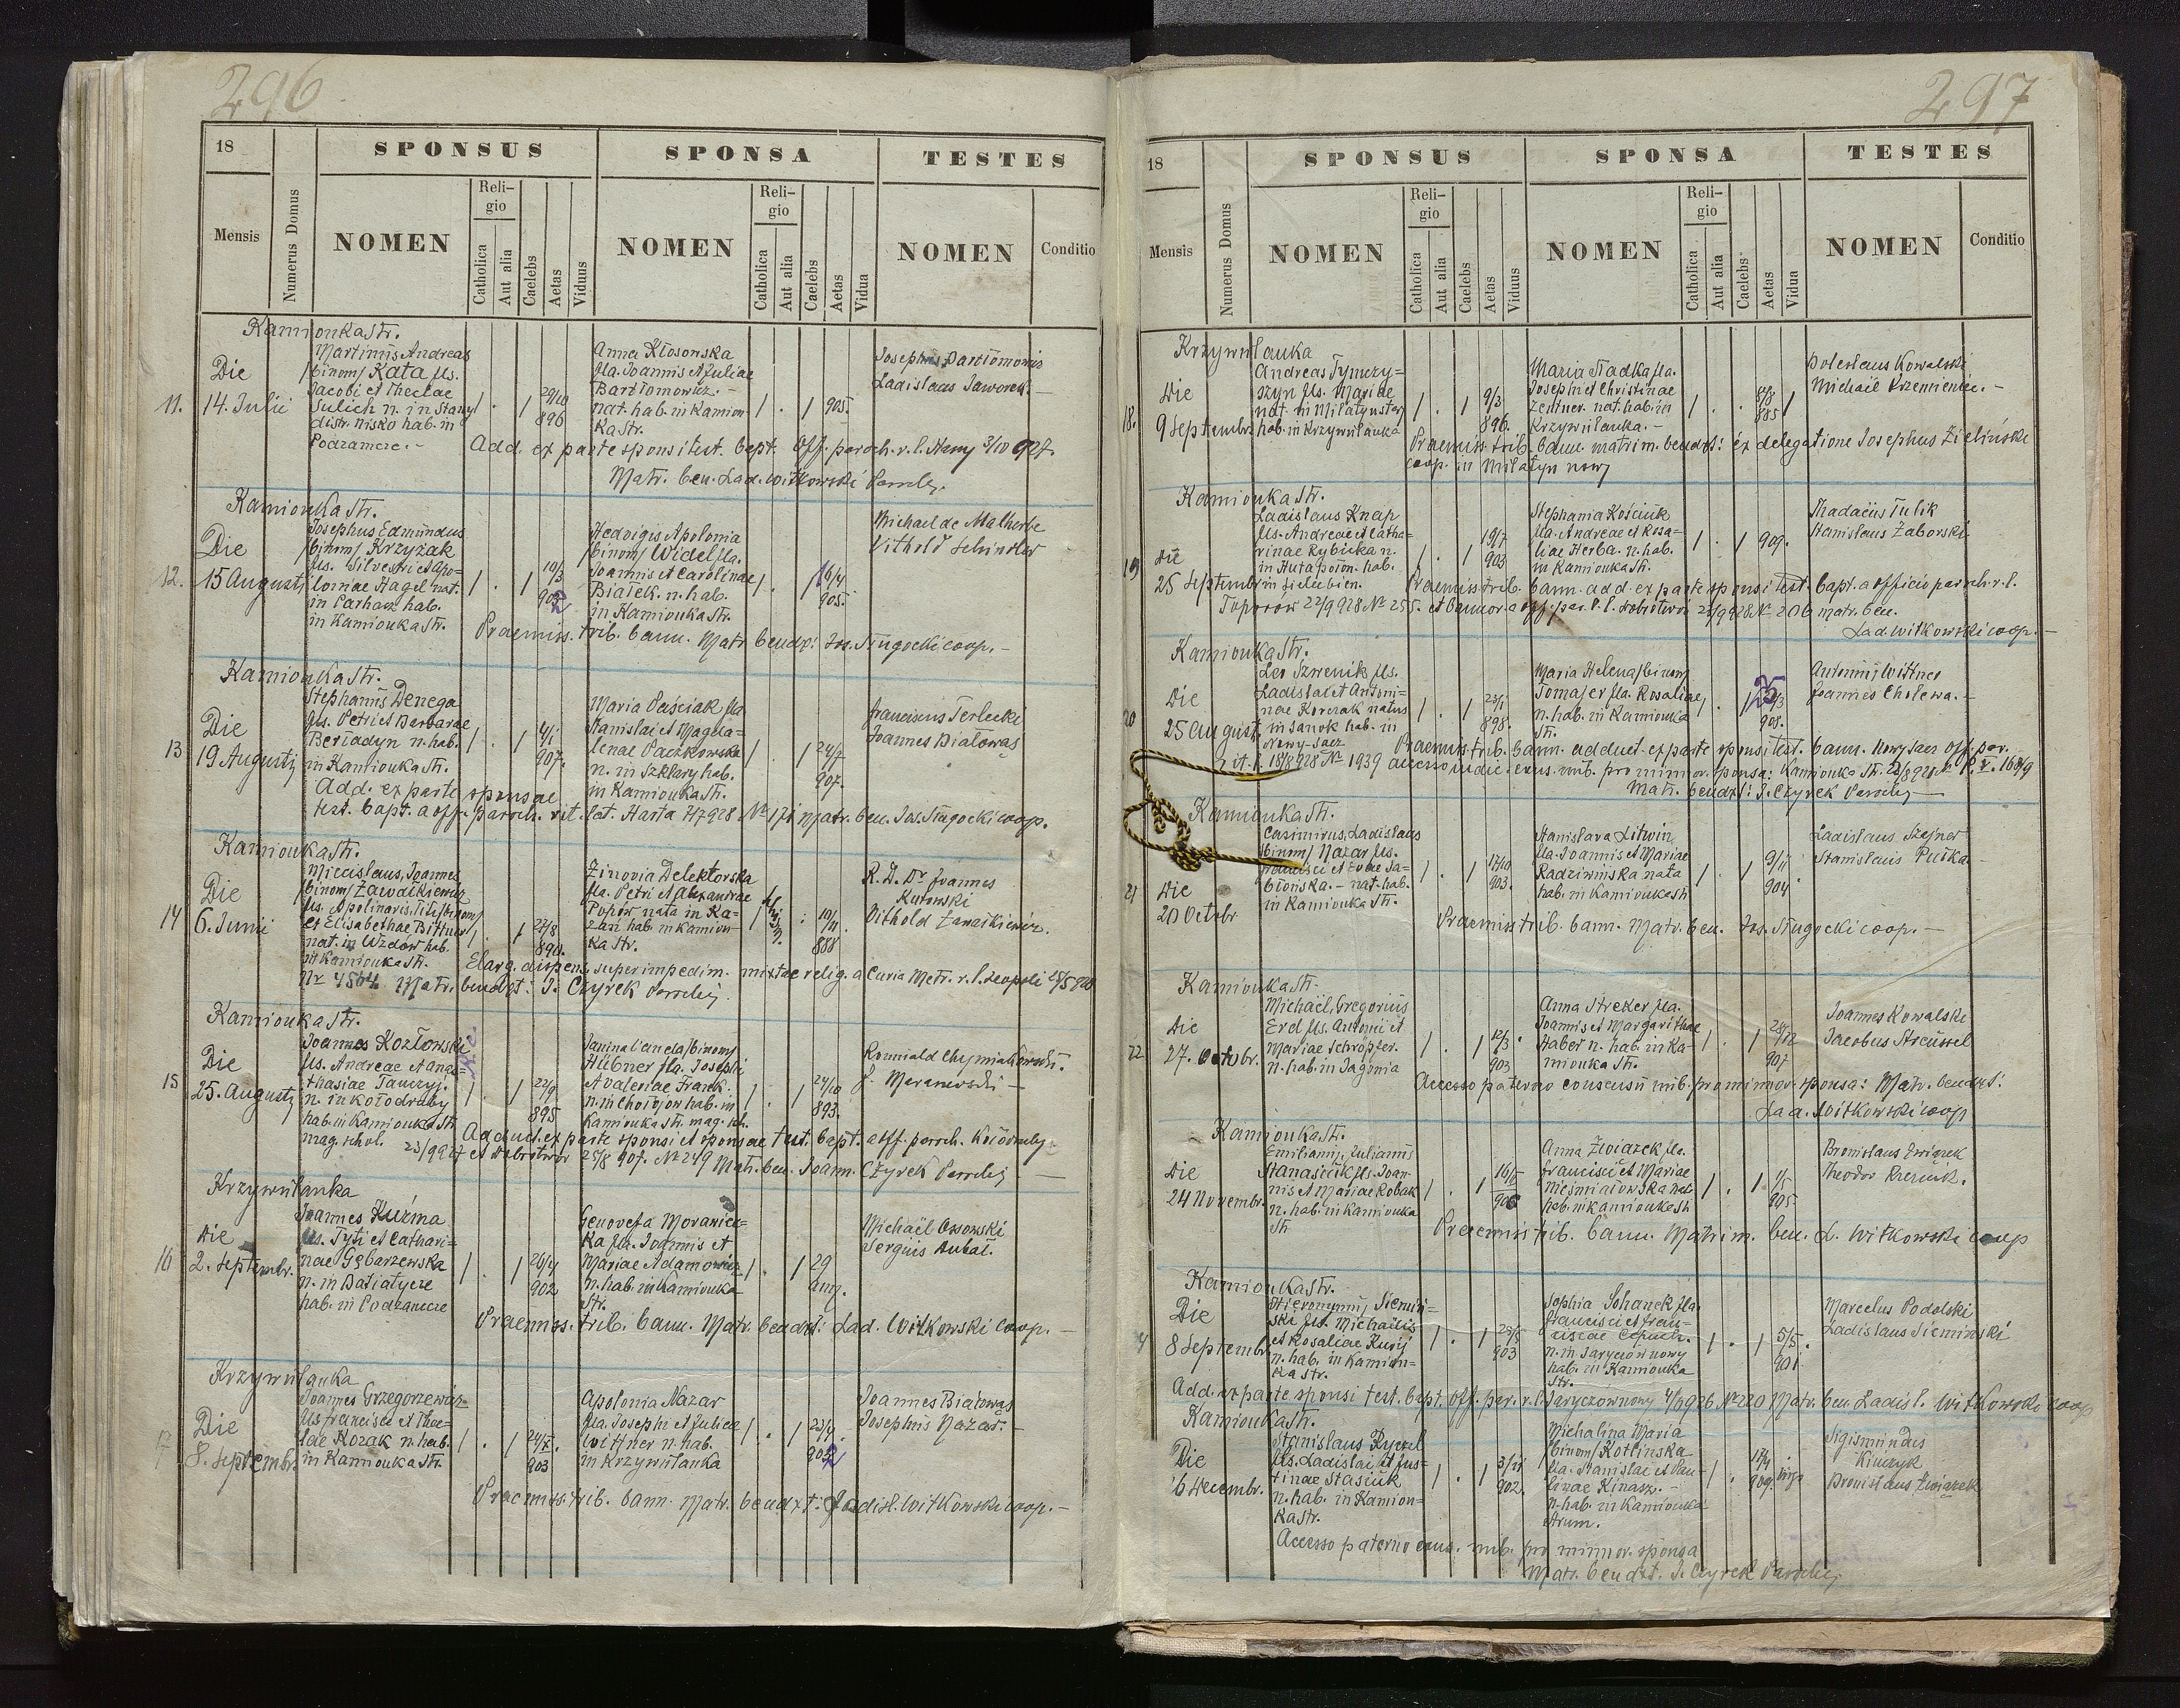 296
18
SPONSUS
SPONSA
TESTES
Mensis
Numerus Domus
NOMEN
Religio
Catholica
Aut alia
Caelebs
Aetas
Viduus
NOMEN
Religio
Catholica
Aut alia
Caelebs
Aetas
Vidua
NOMEN
Conditio
Kamionka Str.
11.
Die
14. Julii
Martinus Andreas
/binom/ Kata fls.
Jacobi et Theclae
Sulich n. in Stany
distr. nisko hab. in
Podzamcze.-
29/10
896
Anna Kłosowska
fla. Joannis et Juliae
Bartłomowicz.-
nat. hab. in Kamion-
ka Str.
905.
Josephus Bartłomowicz
Ladislaus Jaworek.-
Add. ex parte sponsi test. bapt. Off. paroch. r. l. Stany 3/10 927.
Matr. ben. Lad. Witkowski Paroch.
Kamionka Str.
12.
Die
15 Augusti
Josephus Edmundus
/binom/ Krzyżak
fls. Silvestri et Apo-
loniae Hagel nat.
in Parhacz hab.
in Kamionka Str.
10/3
902
Hedvigis Apolonia
/binom/ Widel fla.
Joannis et Carolinae
Białek. n. hab.
in Kamionka Str.
16/4
905.
Michael de Malherbe
Vithold Schindler
Praemiss. trib. bann. Matr. bendx: Jos. Sługocki coop.-
Kamionka Str.
13
Die
19 Augusti
Stephanus Denega
fls. Petri et Barbarae
Berładyn n. hab.
in Kamionka Str.
4/1
907.
Maria Paściak fla
Stanislai et Magda-
lenae Paczkowska
n. in Szklary hab.
in Kamionka Str.
24/7
907.
Franciscus Terlecki
Joannes Białowąs
Add. ex parte sponsae
test. bapt. a off. paroch. rit. lat. Harta 7/7 928 No 171 Matr. ben. Jos. Sługocki coop.
Kamionka Str.
14
Die
6. Junii
Miecislaus, Joannes
/binom/ Zawałkiewicz
fls. Apolinaris, Titi /binom/
et Elisabethae Bittner
nat. in Wzdów hab.
in Kamionka Str.
27/8
890.
Zinovia Delektorska
fla. Petri et Alexandrae
Popów nata in Ka-
zań hab. in Kamion-
ka Str.
schism.
10/11
888
R. D. Dr Joannes
Kutowski
Vithold Zawałkiewicz.
Elarg. dispens. super impedim. mixtae relig. a Curia Metr. r. l. Leopoli 25/5 928
Nr 4564 Matr. bendxt: J. Czyrek Paroch.
Kamionka Str.
15
Die
25. Augusti
Joannes Kozłowski
fls. Andreae et Anas-
thasiae Tauczyj.
n. in Kołodruby
hab. in Kamionka Str.
mag. schol.
22/9
895
Janina Vanda /binom/
Hübner fla. Josephi
et Valeriae Franck.
n. in Chołojow hab. in
Kamionka Str. mag. sch.
24/10
893.
Romuald Chymiakowski.
J. Maranowski -
Adduct. ex parte sponsi et sponsae test. bapt. a off. paroch. Kołodruby
23/9 927 et Dobrotwor 25/8 907. No 249 Matr. ben. Joann. Czyrek Paroch.
Krzywulanka
16
Die
2. Septembr.
Joannes Kuźma
fls. Tyti et Cathari-
nae Gębarzewska
n. in Batiatycze
hab. in Podzamcze
26/4
902
Genovefa Morawiec-
ka fla. Joannis et
Mariae Adamowicz
n. hab. in Kamionka
Str.
29
ann.
Michaël Ossowski
Sergius Dubał.
Praemiss. trib. bann. Matr. bendxt: Lad. Witkowski coop.-
Krzywulanka
17
Die
8. Septembr.
Joannes Grzegorzewicz
fls Francisci et Thec-
lae Kozak n. hab.
in Kamionka Str.
24/X.
903
Apolonia Nazar
fla. Josephi et Juliae
Wittner n. hab.
in Krzywulanka
23/4
902
Joannes Białowąs
Josephus Nazar.-
Praemiss. trib. bann. Matr. bendxt: Ladisl. Witkowski coop.-
297
18
SPONSUS
SPONSA
TESTES
Mensis
Numerus Domus
NOMEN
Religio
Catholica
Aut alia
Caelebs
Aetas
Viduus
NOMEN
Religio
Catholica
Aut alia
Caelebs
Aetas
Vidua
NOMEN
Conditio
Krzywulanka
18.
Die
9 Septembr
Andreas Tymczy-
szyn fls. Mariae
nat. in Milatyn stary
hab. in Krzywulanka
9/3
896.
Maria Padka fla.
Josephi et Christinae
Zentner. nat. hab. in
Krzywulanka.-
8/8
885
Boleslaus Kowalski
Michaël Krzemieniec.-
Praemiss. trib. bann. matrim. bendxt: ex delegatione Josephus Zieliński
coop. in Milatyn nowy
Kamionka Str.
19
Die
25 Septembr
Ladislaus Knap
fls. Andreae et Catha-
rinae Rybicka n.
in Huta połon. hab.
in Sielec bien.
19/7
903
Stephania Kościuk
fla. Andreae et Rosa-
liae Herba. n. hab.
in Kamionka Str.
909.
Thadaeus Tulik
Stanislaus Zaborski
Praemiss. trib. bann. add. ex parte sponsi test. bapt. a officio paroch. r. l.
Toporow 22/9 928 No 255. et bannor. a off. par. r. l. Dobrotwor 23/9 928 No 206 matr. ben.
Lad. Witkowski coop.-
Kamionka Str.
20
Die
25 August
Leo Szwenik fls.
Ladislai et Antoni-
nae Korczak natus
in Sanok hab. in
Nowy-Sacz
23/1
898.
Maria Helena /binom/
Tomajer fla. Rosaliae
n. hab. in Kamionka
Str.
908.
Antonius Wittner
Joannes Cholewa.-
Praemiss. trib. bann. adduct. ex parte sponsi test. bann. Nowy Sacz Off. par.
rit. l. 18/8 928 No 1939 accesso iudic. cons. nub. pro minnor. sponsa: Kamionka Str.
Matr. bendxt: J. Czyrek Paroch.
Kamionka Str.
21
Die
20 Octobr
Casimirus, Ladislaus
/binom/ Nazar fls.
Francisci et Zofiae Ja-
błońska.- nat. hab.
in Kamionka Str.
17/10
903.
Stanislava Litwin
fla. Joannis et Mariae
Radziwińska nata
hab. in Kamionka Str
9/11
904
Ladislaus Szajner
Stanislaus Putka
Praemiss trib. bann. Matr. ben. Jos. Sługocki coop.-
Kamionka Str.
22
Die
27. Octobr.
Michaël, Gregorius
Erd fls. Antonii et
Mariae Schröpfer.
n. hab. in Jagonia
12/3
903
Anna Streker fla.
Joannis et Margarithae
Haber n. hab. in Ka-
mionka Str.
28/12
907
Joannes Kowalski
Jacobus Streussel
Accesso paterno consensu nub. pro minnor. sponsa: Matr. bendxt:
Lad. Witkowski coop
Kamionka Str.
Die
24 Novembr.
Emilianus, Julianus
Stanasiuk fls. Joan-
nis et Mariae Robak
n. hab. in Kamionka
Str.
16/5
906
Anna Związek fla.
Francisci et Mariae
Mesmiałowska nat
hab. in Kamionka Str
1/5
905.
Bronislaus Związek
Theodor Kreniuk.
Praemiss trib. bann. Matrim. ben. L. Witkowski coop
Kamionka Str.
Die
8 Septembr.
Hieronymus Siemiń-
ski fls. Michaëlis
et Rosaliae Kurij
n. hab. in Kamion-
ka Str.
25/5
903
Sophia Sohanek fla.
Francisci et Fran-
ciscae Cepuch.
n. in Jaryczów nowy
hab. in Kamionka
Str.
5/5.
901.
Marcelus Podolski
Ladislaus Siemiński
Add. ex parte sponsi test. bapt. off. par. r. l. Jaryczów nowy 4/9 926 No 220 Matr. ben. Ladisl. Witkowski coop
Kamionka Str.
Die
26 Decembr.
Stanislaus Ryczel
fls. Ladislai et Jus-
tinae Stasiuk
n. hab. in Kamion-
ka Str.
3/11
902.
Michalina Maria
/binom/ Kotlinska
fla. Stanislai et Pau-
linae Kinasz.-
n. hab. in Kamionka
Strum.
17/4
909.
Sigismundus
Kinczyk
Bronislaus Związek
Accesso paterno cons. nub. pro minnor. sponsa
Matr. bendxt. J. Czyrek Paroch.